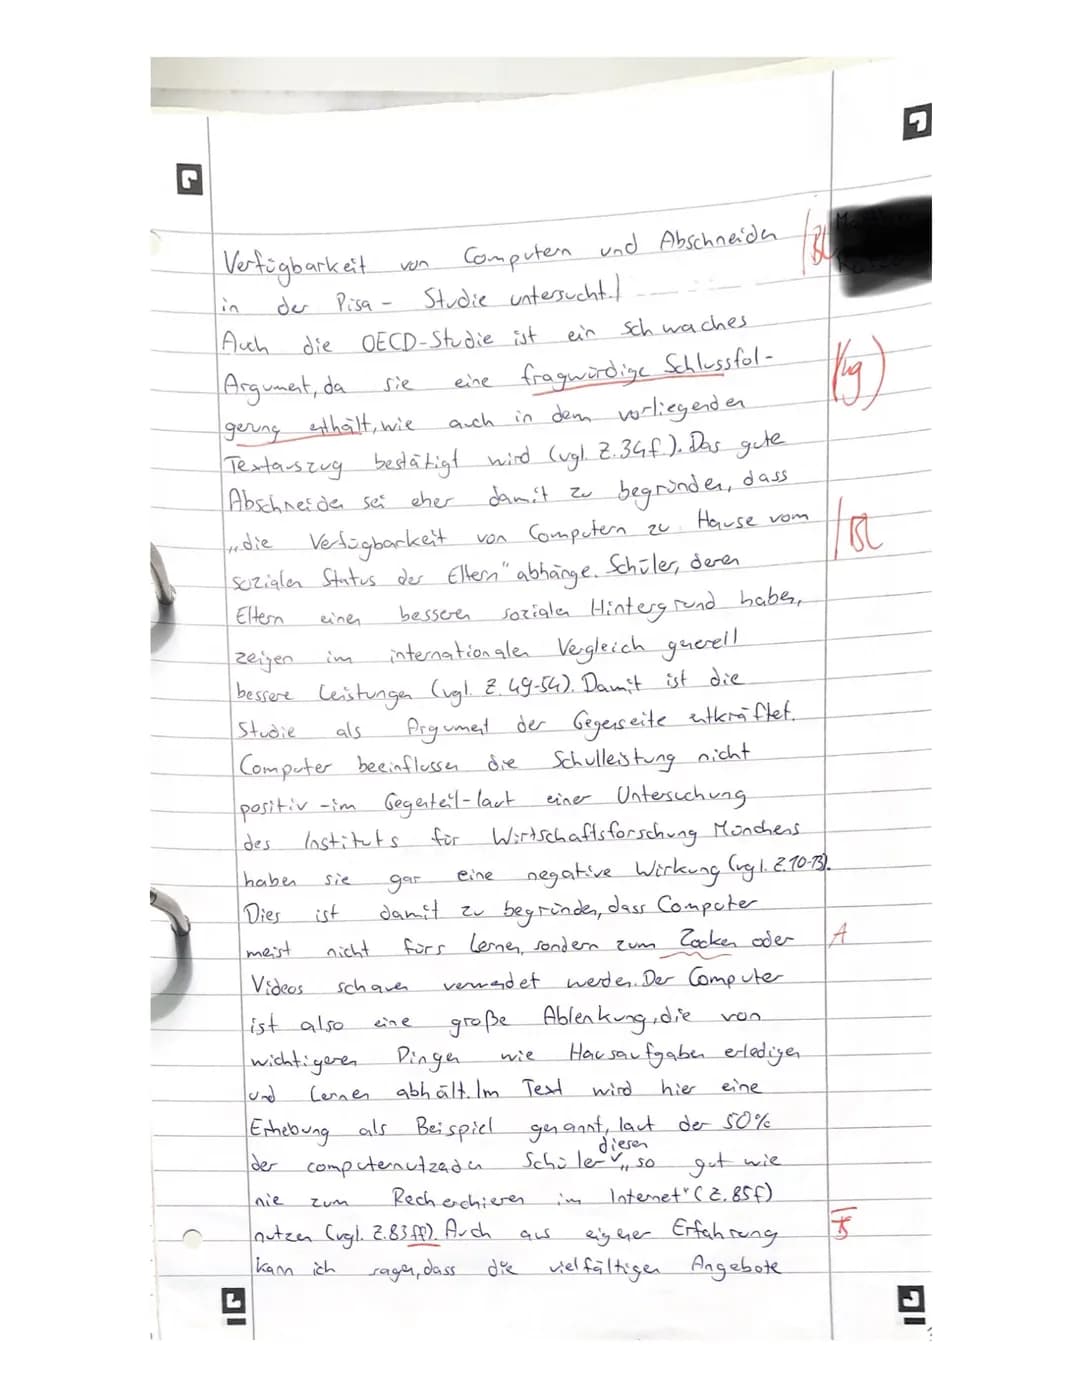 Verfügbarkeit von Computern und Abschneiden /BL
in der Pisa - Studie untersucht./
Auch die OECD-Studie ist ein schwaches
Argument, da sie eine fragwürdige Schlussfol-
gerung enthält, wie auch in dem vorliegenden
Textauszug bestätigt wird (vgl. Z.34f.). Das gute
Abschneiden sei eher damit zu begründen, dass
„die Verfügbarkeit von Computern zu Hause vom /BL
sozialen Status der Eltern" abhänge. Schüler, deren
Eltern einen besseren sozialen Hintergrund haben,
zeigen im internationalen Vergleich generell
bessere Leistungen (vgl. Z. 49-54). Damit ist die
Studie als Argument der Gegenseite entkräftet.
Computer beeinflussen die Schulleistung nicht
positiv - im Gegenteil - laut einer Untersuchung
des Instituts für Wirtschaftsforschung Münchens
haben sie gar eine negative Wirkung (vgl. Z.10-13).
Dies ist damit zu begründen, dass Computer
meist nicht fürs Lernen, sondern zum Zocken oder A
Videos schauen verwendet werden. Der Computer
ist also eine große Ablenkung, die von
wichtigeren Dingen wie Hausaufgaben erledigen
und Lernen abhält. Im Text wird hier eine
Erhebung als Beispiel genannt, laut der 50%
der computernutzenden Schüler diesen „so gut wie
nie zum Recherchieren im Internet" (Z.85f)
nutzen (vgl. Z.83ff). Auch aus eigener Erfahrung
kann ich sagen, dass die vielfältigen Angebote